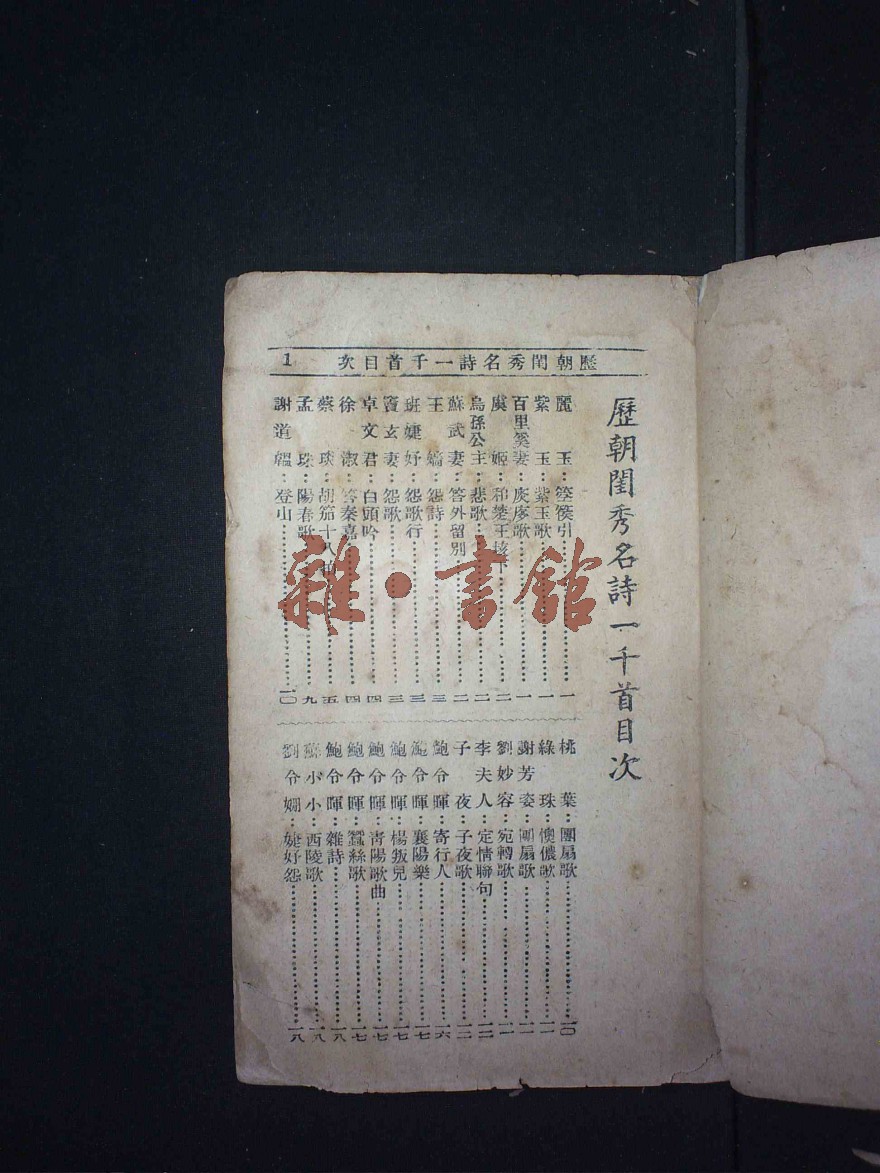 歷朝閨秀名詩一千首目次 1
歷朝閨秀名詩一千首目次
麗玉：箜篌引 一
紫玉：紫玉歌 一
百里奚妻：扊扅歌 一
虞姬：和楚王垓 二
烏孫公主：悲歌 二
蘇武妻：答外留別 二
王嬙：怨詩 三
班婕妤：怨歌行 三
竇玄妻：怨歌 三
卓文君：白頭吟 四
徐淑：答秦嘉 四
蔡琰：胡笳十八拍 五
孟珠：陽春歌 九
謝道韞：登山 一〇
桃葉：團扇歌 一〇
綠珠：懊儂歌 一一
謝芳姿：團扇歌 一一
劉妙容：宛轉歌 一一
李夫人：定情聯句 一二
子夜：子夜歌 一二
鮑令暉：寄行人 一六
鮑令暉：襄陽樂 一七
鮑令暉：楊叛兒 一七
鮑令暉：青陽歌曲 一七
鮑令暉：蠶絲歌 一七
鮑令暉：雜詩 一八
蘇小小：西陵歌 一八
劉令嫺：婕妤怨 一八
雜·書館